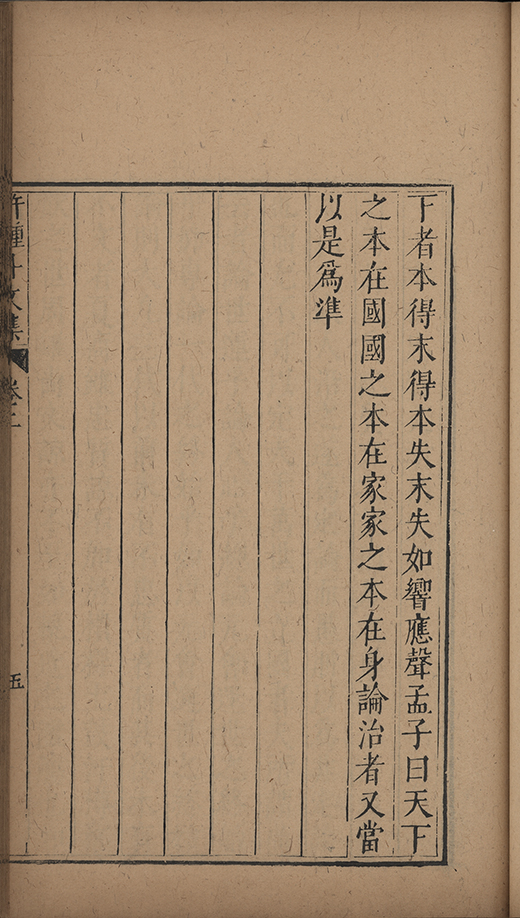 下者本得末得本失末失如響應聲孟子曰天下
之本在國國之本在家家之本在身論治者又當
以是爲準
文集
卷三
五